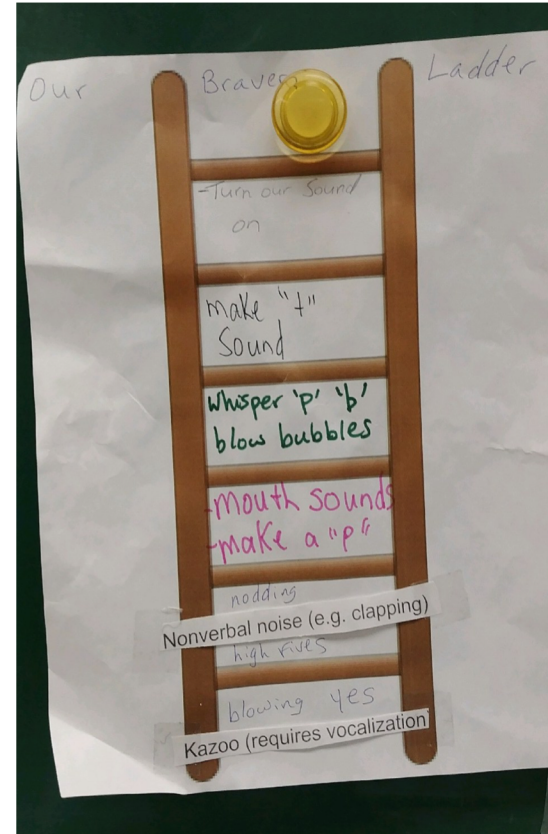 Our Bravery Ladder
-Turn our Sound
on
make "t"
Sound
Whisper 'p' 'b'
blow bubbles
-mouth sounds
-make a "p"
nodding
Nonverbal noise (e.g. clapping)
high fives
blowing yes
Kazoo (requires vocalization